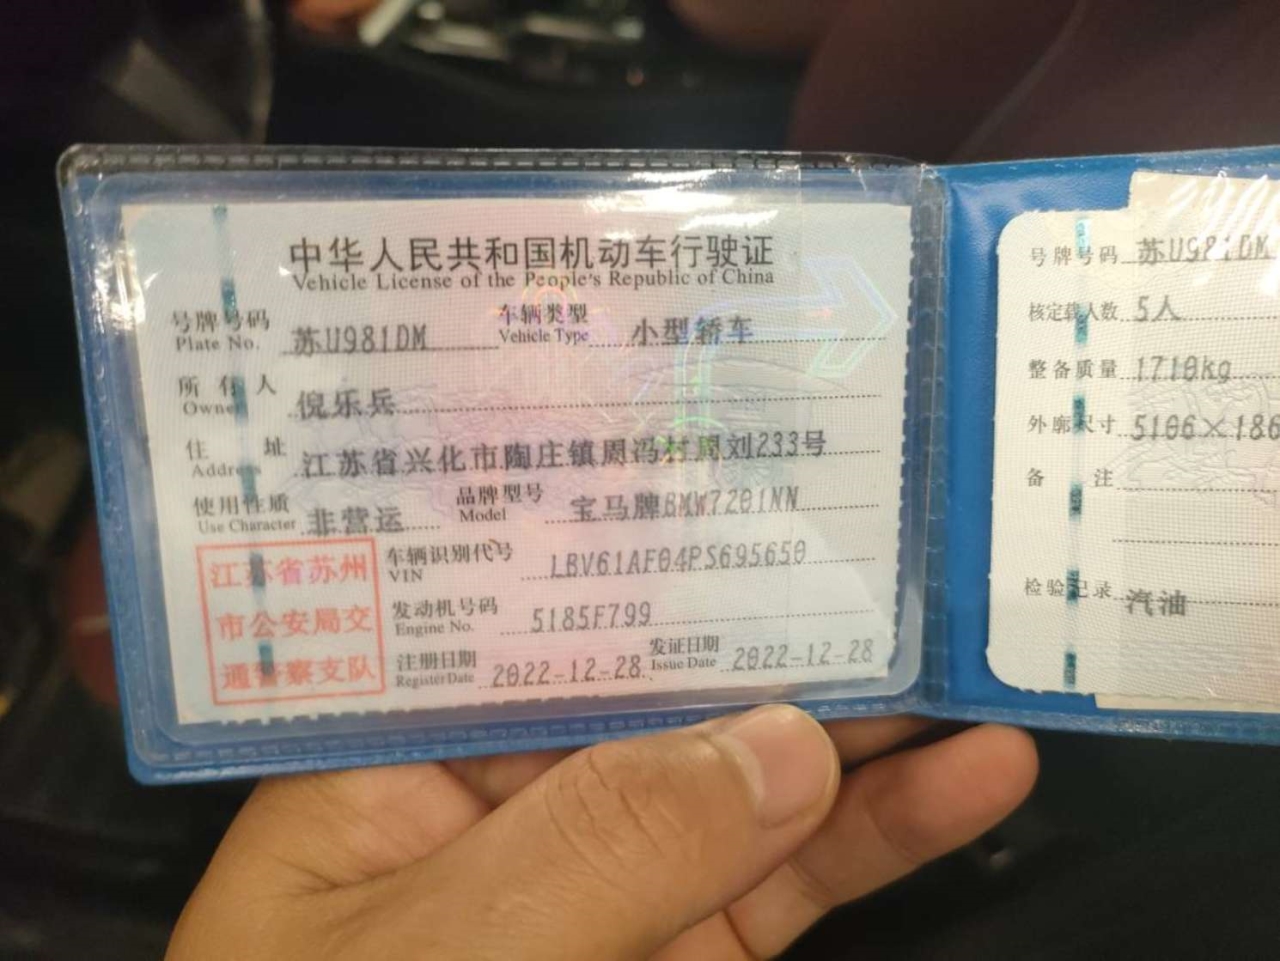 中华人民共和国机动车行驶证
Vehicle License of the People's Republic of China
号牌号码 苏U981DM 车辆类型 小型轿车
Plate No. Vehicle Type
所有人 倪乐兵
Owner
住址 江苏省兴化市陶庄镇周冯村周刘233号
Address
使用性质 非营运 品牌型号 宝马牌BMW7201NN
Use Character Model
江苏省苏州
市公安局交
通警察支队
车辆识别代号 LBV61AF04PS695650
VIN
发动机号码 5185F799
Engine No.
注册日期 2022-12-28 发证日期 2022-12-28
Register Date Issue Date
号牌号码 苏U981DM
核定载人数 5人
整备质量 1710kg
外廓尺寸 5106×186
备注
检验记录 汽油